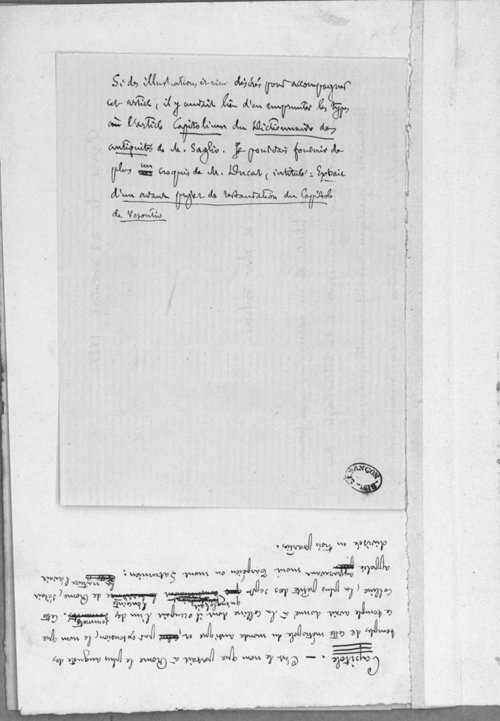 Si des illustrations étaient désirées pour accompagner
cet article, il y aurait lieu d'en emprunter les types
à l'article Capitolium du Dictionnaire des
antiquités de M. Saglio. Je pourrais fournir de
plus un croquis de M. Ducat, intitulé : Extrait
d'un avant projet de restauration du Capitole
de Vesontio
BESANÇON
BIB.
Capitole. — C'est le nom que portait à Rome le plus auguste des
temples de cette métropole du monde antique et, par extension, le nom que
ce temple avait donné à la colline dont il occupait l'un des sommets. Cette
colline, la plus petite des sept de Rome, s'était
appelée mont Tarpéien ou mont Saturnien :
divisée en trois parties.